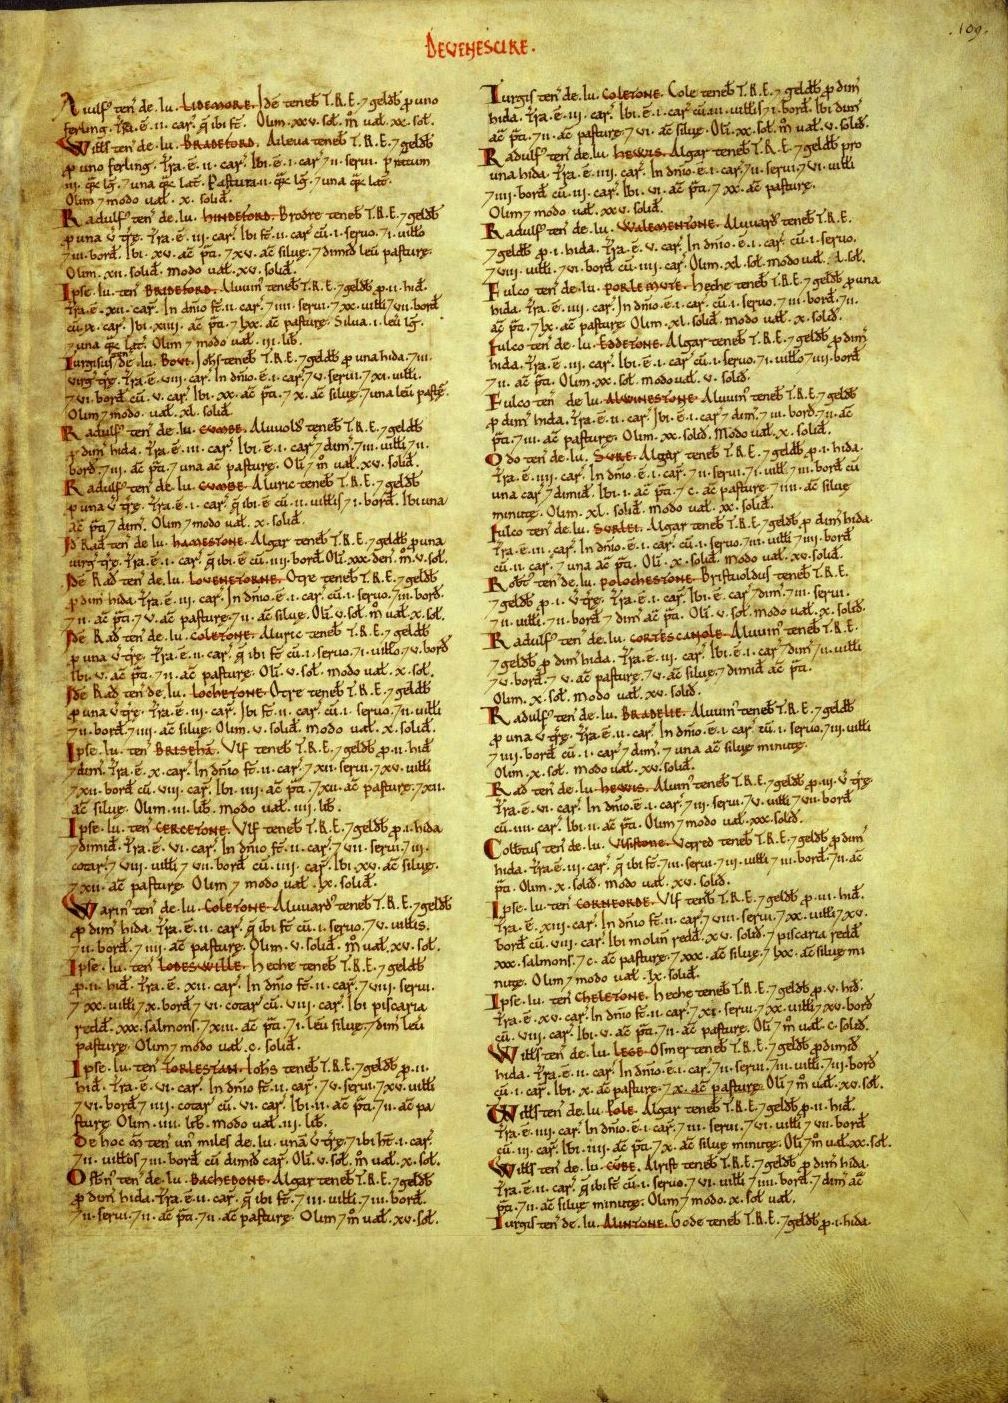 DEVENESCIRE.
.109.
Aiulf' ten' de .Iu. LIDEMORE. Idē teneb' T.R.E. ⁊ geldb' ꝓ uno
ferling. Tr̄a.ē.ii. car'. q̄ ibi sē. Olim .xxv. sol'. m̊ ual' .xx. sol'.
Will's ten' de .Iu. BRADEFORD. Aileua teneb' T.R.E. ⁊ geldb'
ꝓ uno ferling. Tr̄a.ē.ii. car'. Ibi.ē.i. car' ⁊ ii. serui. p̄ratum
iii. q̄z lḡ. ⁊ una q̄z lat'. Pastura.ii. q̄z lḡ. ⁊ una q̄z lat'.
Olim ⁊ modo ual'. x. solid'.
Radulf' ten' de .Iu. HINDEFORD. Brodre teneb' T.R.E. ⁊ geldb'
ꝓ una v̄ træ. Tr̄a.ē.iii. car'. Ibi sē.ii. car' cū .i. seruo. ⁊ i. uill'o
⁊ iii. bord'. Ibi .xv. ac̄ p̄ti. ⁊ xv. ac̄ siluę. ⁊ dimid' leu' pasturę.
Olim .xii. solid'. modo ual' .xv. solid'.
Ipse .Iu. ten' BRADEFORD. Aluuin' teneb' T.R.E. ⁊ geldb' ꝓ ii. hid'.
Tr̄a.ē.xii. car'. In dn̄io sē.ii. car'. ⁊ iiii. serui. ⁊ xx. uill'i ⁊ vii. bord'
cū .ix. car'. Ibi .xiiii. ac̄ p̄ti. ⁊ lxx. ac̄ pasturę. Silua .i. leu' lḡ.
⁊ una q̄z lat'. Olim ⁊ modo ual' .iii. lib'.
Iurgisus de .Iu. BOVI. Ioh's teneb' T.R.E. ⁊ geldb' ꝓ una hida. ⁊ iii.
virg' træ. Tr̄a.ē.viii. car'. In dn̄io.ē.i. car'. ⁊ v. serui. ⁊ xi. uill'i.
⁊ vi. bord' cū .v. car'. Ibi .xx. ac̄ p̄ti. ⁊ x. ac̄ siluę. ⁊ una leu' pastę.
Olim ⁊ modo ual' .xl. solid'.
Radulf' ten' de .Iu. CUMBE. Aluuold' teneb' T.R.E. ⁊ geldb'
ꝓ dim' hida. Tr̄a.ē.iii. car'. Ibi.ē.i. car' ⁊ dim'. ⁊ iii. uill'i ⁊ ii.
bord'. ⁊ iii. ac̄ p̄ti. ⁊ una ac̄ pasturę. Oli' ⁊ m̊ ual' .xv. solid'.
Radulf' ten' de .Iu. CUMBE. Aluric' teneb' T.R.E. ⁊ geldb'
ꝓ una v̄ træ. Tr̄a.ē.ii. car'. q̄ ibi sē cū .ii. uill'is ⁊ i. bord'. Ibi una
ac̄ p̄ti ⁊ dim'. Olim ⁊ modo ual' .x. solid'.
Id' Rad' ten' de .Iu. HAMESTONE. Algar teneb' T.R.E. ⁊ geldb' ꝓ una
virg' træ. Tr̄a.ē.i. car'. q̄ ibi ē cū .iiii. bord'. Oli' .xxx. den'. m̊ .v. sol'.
Idē Rad' ten' de .Iu. LOVENETORNE. Otre teneb' T.R.E. ⁊ geldb'
ꝓ dim' hida. Tr̄a.ē.iii. car'. In dn̄io.ē.i. car' cū .i. seruo. ⁊ iii. bord'
⁊ ii. ac̄ p̄ti. ⁊ v. ac̄ pasturę. ⁊ ii. ac̄ siluę. Oli' .v. sol'. m̊ ual' .x. sol'.
Idē Rad' ten' de .Iu. COLETONE. Aluric teneb' T.R.E. ⁊ geldb'
ꝓ una v̄ træ. Tr̄a.ē.ii. car'. q̄ ibi sē cū .i. seruo. ⁊ i. uill'o ⁊ v. bord'
Ibi .v. ac̄ p̄ti. ⁊ ii. ac̄ pasturę. Oli' .v. sol'. modo ual' .x. sol'.
Idē Rad' ten' de .Iu. LOCHETONE. Otre teneb' T.R.E. ⁊ geldb'
ꝓ una v̄ træ. Tr̄a.ē.iii. car'. Ibi sē.ii. car' cū .i. seruo. ⁊ ii. uill'i
⁊ ii. bord'. ⁊ iiii. ac̄ siluę. Olim .v. solid'. modo ual' .x. solid'.
Ipse .Iu. ten' BRISEHĀ. Vlf teneb' T.R.E. ⁊ geldb' ꝓ ii. hid'
⁊ dim'. Tr̄a.ē.x. car'. In dn̄io sē.ii. car'. ⁊ xii. serui. ⁊ xx. uill'i
⁊ xii. bord' cū .x. car'. Ibi .iiii. ac̄ p̄ti. ⁊ xii. ac̄ pasturę. ⁊ xii.
ac̄ siluę. Olim .iii. lib'. modo ual' .iiii. lib'.
Ipse .Iu. ten' CERCETONE. Vlf teneb' T.R.E. ⁊ geldb' ꝓ i. hida
⁊ dimid'. Tr̄a.ē.vi. car'. In dn̄io sē.ii. car'. ⁊ vii. serui. ⁊ iii.
cotar'. ⁊ viii. uill'i ⁊ vii. bord' cū .iiii. car'. Ibi .xv. ac̄ siluę.
⁊ xii. ac̄ pasturę. Olim ⁊ modo ual' .lx. solid'.
Warin' ten' de .Iu. COLETONE. Aluuard' teneb' T.R.E. ⁊ geldb'
ꝓ dim' hida. Tr̄a.ē.ii. car'. q̄ ibi sē cū .i. seruo. ⁊ v. uill'is.
⁊ ii. bord'. ⁊ iiii. ac̄ pasturę. Olim .v. solid'. m̊ ual' .xv. sol'.
Ipse .Iu. ten' LODESWILLE. Heche teneb' T.R.E. ⁊ geldb'
ꝓ ii. hid'. Tr̄a.ē.xii. car'. In dn̄io sē.ii. car'. ⁊ viii. serui.
⁊ xx. uill'i ⁊ x. bord' ⁊ vi. cotar' cū .viii. car'. Ibi piscaria
redd' .xxx. salmons. ⁊ xiii. ac̄ p̄ti. ⁊ i. leu' siluę. ⁊ dim' leu'
pasturę. Olim ⁊ modo ual' .c. solid'.
Ipse .Iu. ten' TORLESTAN. Ioh's teneb' T.R.E. ⁊ geldb' ꝓ ii.
hid'. Tr̄a.ē.vi. car'. In dn̄io sē.ii. car'. ⁊ v. serui. ⁊ xv. uill'i
⁊ vi. bord' ⁊ iiii. cotar' cū .vi. car'. Ibi .ii. ac̄ p̄ti. ⁊ ii. ac̄ pa
sturę. Olim .iiii. lib'. modo ual' .iii. lib'.
De hoc m̄ ten' un' miles de .Iu. unā v̄ træ. ⁊ ibi ht̄ .i. car'.
⁊ ii. uill'os ⁊ iii. bord' cū dimid' car'. Oli' .v. sol'. m̊ ual' .x. sol'.
Osb'n' ten' de .Iu. BACHEDONE. Algar teneb' T.R.E. ⁊ geldb'
ꝓ dim' hida. Tr̄a.ē.ii. car'. q̄ ibi sē. ⁊ iii. uill'i. ⁊ iiii. bord'.
⁊ ii. serui. ⁊ ii. ac̄ p̄ti. ⁊ ii. ac̄ pasturę. Olim ⁊ m̊ ual' .xv. sol'.
Iurgis' ten' de .Iu. COLETONE. Cole teneb' T.R.E. ⁊ geldb' ꝓ dim'
hida. Tr̄a.ē.iii. car'. Ibi.ē.i. car' cū .iii. uill'is ⁊ i. bord'. Ibi dim'
ac̄ p̄ti. ⁊ ii. ac̄ pasturę. ⁊ vi. ac̄ siluę. Oli' .xx. sol'. m̊ ual' .v. solid'.
Radulf' ten' de .Iu. HEWIS. Algar teneb' T.R.E. ⁊ geldb' pro
una hida. Tr̄a.ē.iiii. car'. In dn̄io.ē.i. car'. ⁊ ii. serui. ⁊ vi. uill'i
⁊ iiii. bord' cū .iii. car'. Ibi .vi. ac̄ p̄ti ⁊ xx. ac̄ pasturę.
Olim ⁊ modo ual' .xxv. solid'.
Radulf' ten' de .Iu. WALEMENTONE. Aluuard' teneb' T.R.E.
⁊ geldb' ꝓ i. hida. Tr̄a.ē.v. car'. In dn̄io.ē.i. car' cū .i. seruo.
⁊ viii. uill'i. ⁊ vi. bord' cū .iiii. car'. Olim .xl. sol'. modo ual' .l. sol'.
Fulco ten' de .Iu. PORLEMUTE. Heche teneb' T.R.E. ⁊ geldb' ꝓ una
hida. Tr̄a.ē.iiii. car'. In dn̄io.ē.i. car' cū .i. seruo. ⁊ iii. bord'. ⁊ ii.
ac̄ p̄ti. ⁊ lx. ac̄ pasturę. Olim .xl. solid'. modo ual' .x. solid'.
Fulco ten' de .Iu. EDDETONE. Algar teneb' T.R.E. ⁊ geldb' ꝓ dim'
hida. Tr̄a.ē.iii. car'. Ibi.ē.i. car' cū .i. seruo. ⁊ i. uill'o ⁊ iiii. bord'
⁊ ii. ac̄ p̄ti. Olim .xx. sol'. modo ual' .v. solid'.
Fulco ten' de .Iu. ALWINESTONE. Aluuin' teneb' T.R.E. ⁊ geldb'
ꝓ dim' hida. Tr̄a.ē.ii. car'. Ibi.ē.i. car' ⁊ dim'. ⁊ iii. bord'. ⁊ ii. ac̄
p̄ti. ⁊ iii. ac̄ pasturę. Olim .xx. solid'. Modo ual' .x. solid'.
Odo ten' de .Iu. SURE. Algar teneb' T.R.E. ⁊ geldb' ꝓ i. hida.
Tr̄a.ē.iiii. car'. In dn̄io.ē.i. car'. ⁊ ii. serui. ⁊ i. uill's ⁊ iii. bord' cū
una car' ⁊ dimid'. Ibi .i. ac̄ p̄ti. ⁊ c. ac̄ pasturę. ⁊ iiii. ac̄ siluę
minutę. Olim .xl. solid'. modo ual' .xx. solid'.
Fulco ten' de .Iu. SURLEI. Algar teneb' T.R.E. ⁊ geldb' ꝓ dim' hida.
Tr̄a.ē.iii. car'. In dn̄io.ē.i. car' cū .i. seruo. ⁊ iii. uill'i ⁊ iiii. bord'
cū .ii. car'. ⁊ una ac̄ p̄ti. Oli' .x. solid'. Modo ual' .xv. solid'.
Rob't' ten' de .Iu. POLOCHESTONE. Bristuoldus teneb' T.R.E.
⁊ geldb' ꝓ i. v̄ træ. Tr̄a.ē.ii. car'. Ibi.ē.i. car' ⁊ dim'. ⁊ iii. serui.
⁊ ii. uill'i. ⁊ ii. bord' ⁊ dim' ac̄ p̄ti. Oli' .v. sol'. Modo ual' .x. solid'.
Radulf' ten' de .Iu. CORTESCANOLE. Aluuin' teneb' T.R.E.
⁊ geldb' ꝓ dim' hida. Tr̄a.ē.iii. car'. Ibi.ē.i. car' ⁊ dim' ⁊ ii. uill'i
⁊ v. bord'. ⁊ v. ac̄ pasturę. ⁊ v. ac̄ siluę. ⁊ dimid' ac̄ p̄ti.
Olim .x. sol'. Modo ual' .xv. solid'.
Radulf' ten' de .Iu. BRADELIE. Aluuin' teneb' T.R.E. ⁊ geldb'
ꝓ una v̄ træ. Tr̄a.ē.ii. car'. In dn̄io.ē.i. car' cū .i. seruo. ⁊ iii. uill'i
⁊ iiii. bord' cū .i. car' ⁊ dim'. ⁊ una ac̄ siluę minutę.
Olim .x. sol'. Modo ual' .xv. solid'.
Rad' ten' de .Iu. HEWIS. Aluin' teneb' T.R.E. ⁊ geldb' ꝓ iii. v̄ træ.
Tr̄a.ē.vi. car'. In dn̄io.ē.i. car'. ⁊ iii. serui. ⁊ v. uill'i ⁊ vii. bord'
cū .iiii. car'. Ibi .ii. ac̄ p̄ti. Olim ⁊ modo ual' .xxx. solid'.
Colb'tus ten' de .Iu. VISISTONE. Vered teneb' T.R.E. ⁊ geldb' ꝓ dim'
hida. Tr̄a.ē.iii. car'. q̄ ibi sē. ⁊ iii. serui. ⁊ iii. uill'i ⁊ iii. bord'. ⁊ ii. ac̄
p̄ti. Olim .x. solid'. modo ual' .xv. solid'.
Ipse .Iu. ten' CORNEORDE. Vlf teneb' T.R.E. ⁊ geldb' ꝓ iii. hid'.
Tr̄a.ē.xiii. car'. In dn̄io sē.ii. car'. ⁊ viii. serui. ⁊ xx. uill'i ⁊ xv.
bord' cū .viii. car'. Ibi molin' redd' .xv. solid'. ⁊ piscaria redd'
xxx. salmons. ⁊ c. ac̄ pasturę. ⁊ xxx. ac̄ siluę. ⁊ lxx. ac̄ siluę mi
nutę. Olim ⁊ modo ual' .lx. solid'.
Ipse .Iu. ten' CHELETONE. Heche teneb' T.R.E. ⁊ geldb' ꝓ v. hid'.
Tr̄a.ē.xv. car'. In dn̄io sē.ii. car'. ⁊ xi. serui. ⁊ xx. uill'i. ⁊ xv. bord'
cū .viii. car'. Ibi .v. ac̄ p̄ti. ⁊ ii. ac̄ pasturę. Oli' ⁊ m̊ ual' .c. solid'.
Will's ten' de .Iu. LEGE. Osmer teneb' T.R.E. ⁊ geldb' ꝓ dimid'
hida. Tr̄a.ē.ii. car'. In dn̄io.ē.i. car'. ⁊ ii. serui. ⁊ iii. uill'i. ⁊ iii. bord'
cū .i. car'. Ibi .x. ac̄ pasturę. ⁊ x. ac̄ pasturę. Oli' ⁊ m̊ ual' .xv. sol'.
Will's ten' de .Iu. POLE. Algar teneb' T.R.E. ⁊ geldb' ꝓ ii. hid'.
Tr̄a.ē.iiii. car'. In dn̄io.ē.i. car'. ⁊ iii. serui. ⁊ vi. uill'i ⁊ vii. bord'
cū .iii. car'. Ibi .iiii. ac̄ p̄ti. ⁊ x. ac̄ siluę minutę. Oli' ⁊ m̊ ual' .xx. sol'.
Will's ten' de .Iu. CUBE. Alrist' teneb' T.R.E. ⁊ geldb' ꝓ dim' hida.
Tr̄a.ē.ii. car'. q̄ ibi sē cū .i. seruo. ⁊ vi. uill'i. ⁊ ii. bord'. ⁊ dim' ac̄
p̄ti. ⁊ ii. ac̄ siluę minutę. Olim ⁊ modo .x. solid' ual'.
Iurgis' ten' de .Iu. ALINTONE. Gode teneb' T.R.E. ⁊ geldb' ꝓ i. hida